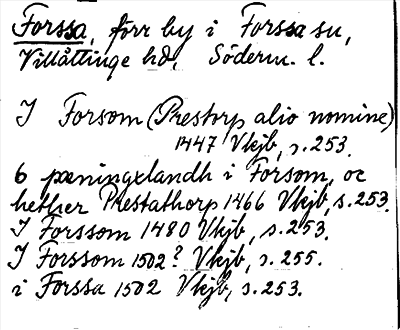 Forssa, förr by i Forssa sn,
Villåttinge hd, Söderm. l.
I Forsom (Prestorp alio nomine)
1447 Vkjb, s. 253.
6 pæningxlandh i Forsom, oc
hether Prestathorp 1466 Vkjb, s. 253.
I Forssom 1480 Vkjb, s. 253.
I Forssom 1502? Vkjb, s. 255.
i Forssa 1502 Vkjb, s. 253.